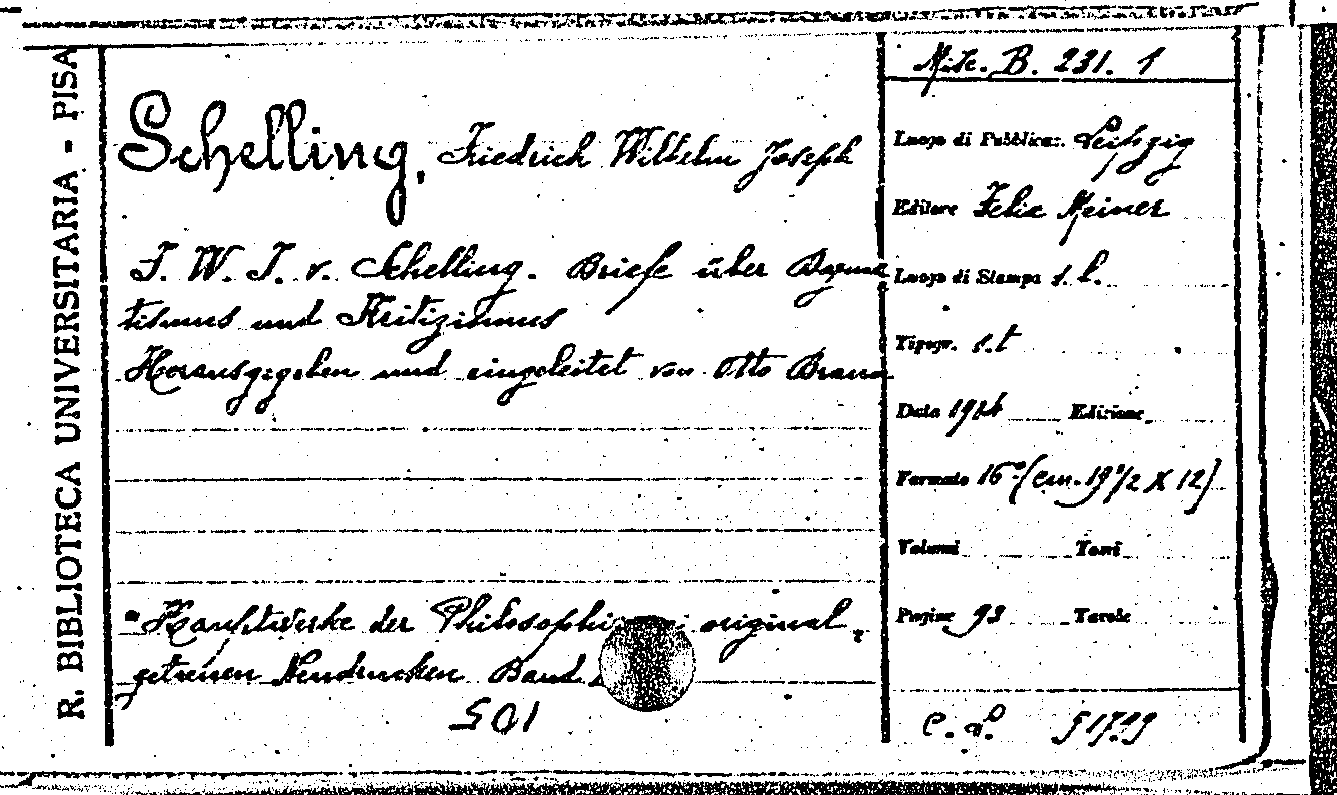 R. BIBLIOTECA UNIVERSITARIA - PISA
Schelling, Friedrich Wilhelm Joseph
F. W. J. v. Schelling. Briefe über Dogma
tismus und Kritizismus
Herausgegeben und eingeleitet von Otto Braun
"Hauptwerke der Philosophi original
getreuen Neudrucken Band
501
B. 231. 1
Luogo di Pubblicaz. Leipzig
Editore Felix Meiner
Luogo di Stampa s. l.
Tipogr. s. t
Data Edizione
Formato 16° (cm. 19 1/2 X 12)
Volumi Tomi
Pagine 93 Tavole
C. d. 51799